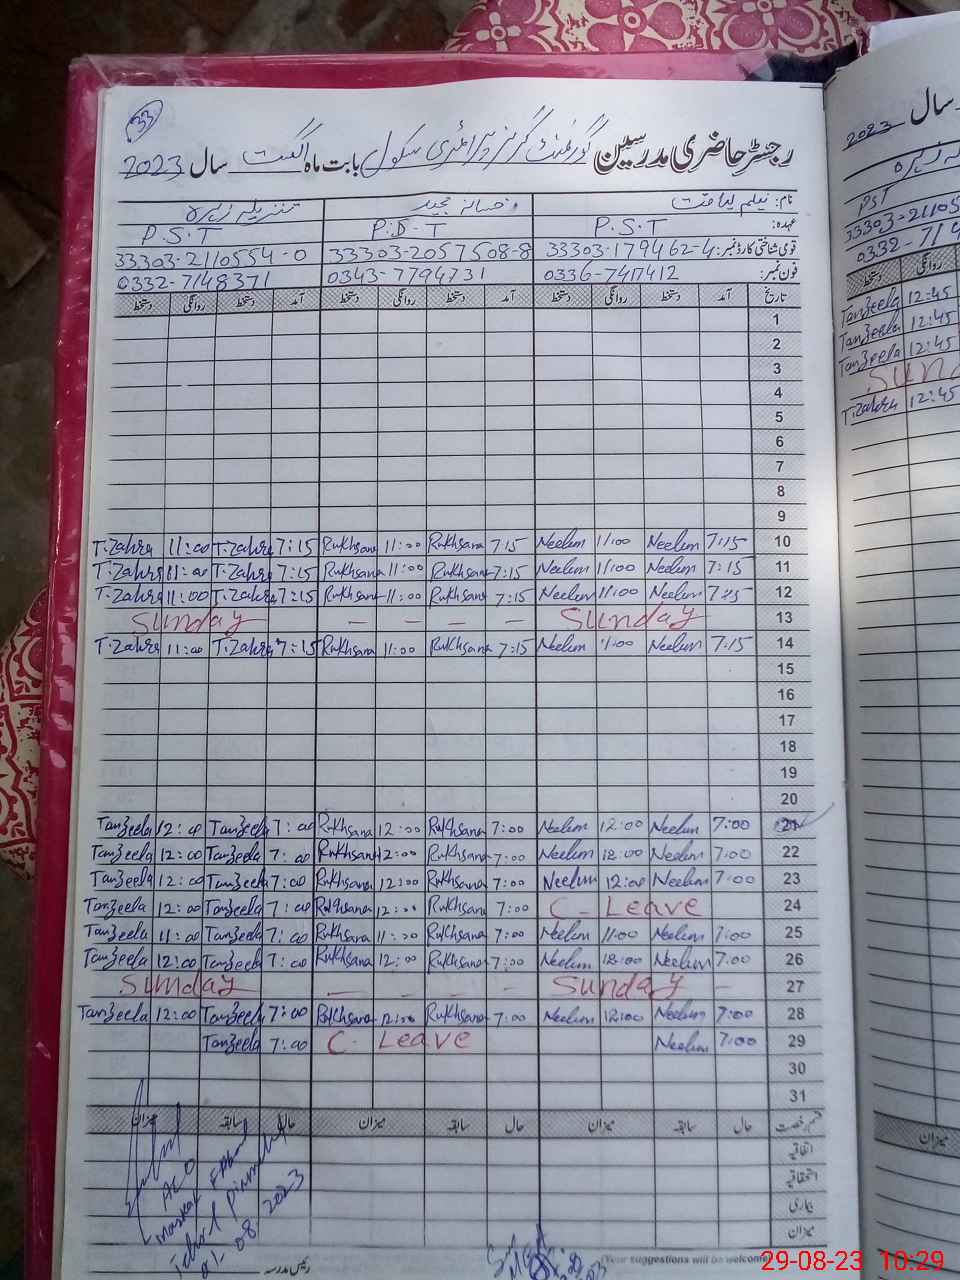 33
رجسٹر حاضری مدرسین گورنمنٹ گرلز پرائمری سکول بابت ماہ اگست سال 2023
نام: نیلم لیاقت رخسانہ مجید تنزیلہ زہرہ
عہدہ: P.S.T P.S.T P.S.T
قومی شناختی کارڈ نمبر: 33303-179462-4 33303-2057508-8 33303-2110554-0
فون نمبر: 0336-7417412 0343-7794731 0332-7148371
تاریخ آمد دستخط روانگی دستخط آمد دستخط روانگی دستخط آمد دستخط روانگی دستخط
1
2
3
4
5
6
7
8
9
T.Zahra 11:00 T.Zahra 7:15 Rukhsana 11:00 Rukhsana 7:15 Neelum 11:00 Neelum 7:15 10
T.Zahra 11:00 T.Zahra 7:15 Rukhsana 11:00 Rukhsana 7:15 Neelum 11:00 Neelum 7:15 11
T.Zahra 11:00 T.Zahra 7:15 Rukhsana 11:00 Rukhsana 7:15 Neelum 11:00 Neelum 7:15 12
Sunday – – – – Sunday 13
T.Zahra 11:00 T.Zahra 7:15 Rukhsana 11:00 Rukhsana 7:15 Neelum 11:00 Neelum 7:15 14
15
16
17
18
19
20
Tanzeela 12:00 Tanzeela 7:00 Rukhsana 12:00 Rukhsana 7:00 Neelum 12:00 Neelum 7:00 21
Tanzeela 12:00 Tanzeela 7:00 Rukhsana 12:00 Rukhsana 7:00 Neelum 12:00 Neelum 7:00 22
Tanzeela 12:00 Tanzeela 7:00 Rukhsana 12:00 Rukhsana 7:00 Neelum 12:00 Neelum 7:00 23
Tanzeela 12:00 Tanzeela 7:00 Rukhsana 12:00 Rukhsana 7:00 C- Leave 24
Tanzeela 11:00 Tanzeela 7:00 Rukhsana 11:00 Rukhsana 7:00 Neelum 11:00 Neelum 7:00 25
Tanzeela 12:00 Tanzeela 7:00 Rukhsana 12:00 Rukhsana 7:00 Neelum 12:00 Neelum 7:00 26
Sunday – – – – Sunday – 27
Tanzeela 12:00 Tanzeela 7:00 Rukhsana 12:00 Rukhsana 7:00 Neelum 12:00 Neelum 7:00 28
Tanzeela 7:00 C- Leave Neelum 7:00 29
30
31
قسم رخصت حال سابقہ میزان حال سابقہ میزان حال سابقہ میزان
اتفاقیہ
استحقاقیہ
بیماری
میزان
AEO
Markaz
Tehsil Pirmahal
21-08-2023
رئیس مدرسہ
(Your suggestions will be welcome)
سال 2023
PST
33303-21105
0332-714
روانگی دستخط
Tanzeela 12:45
Tanzeela 12:45
Tanzeela 12:45
Sund
T.Zahra 12:45
میزان
29-08-23 10:29